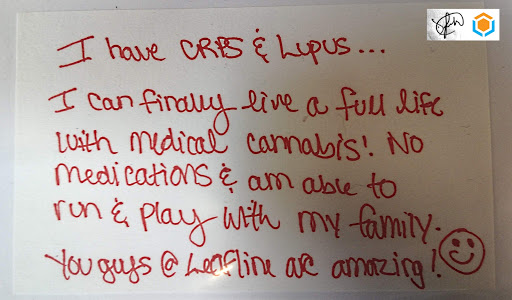 I have CRPS & Lupus...
I can finally live a full life
with medical cannabis! No
medications & am able to
run & play with my family.
You guys @ Leafline are amazing!